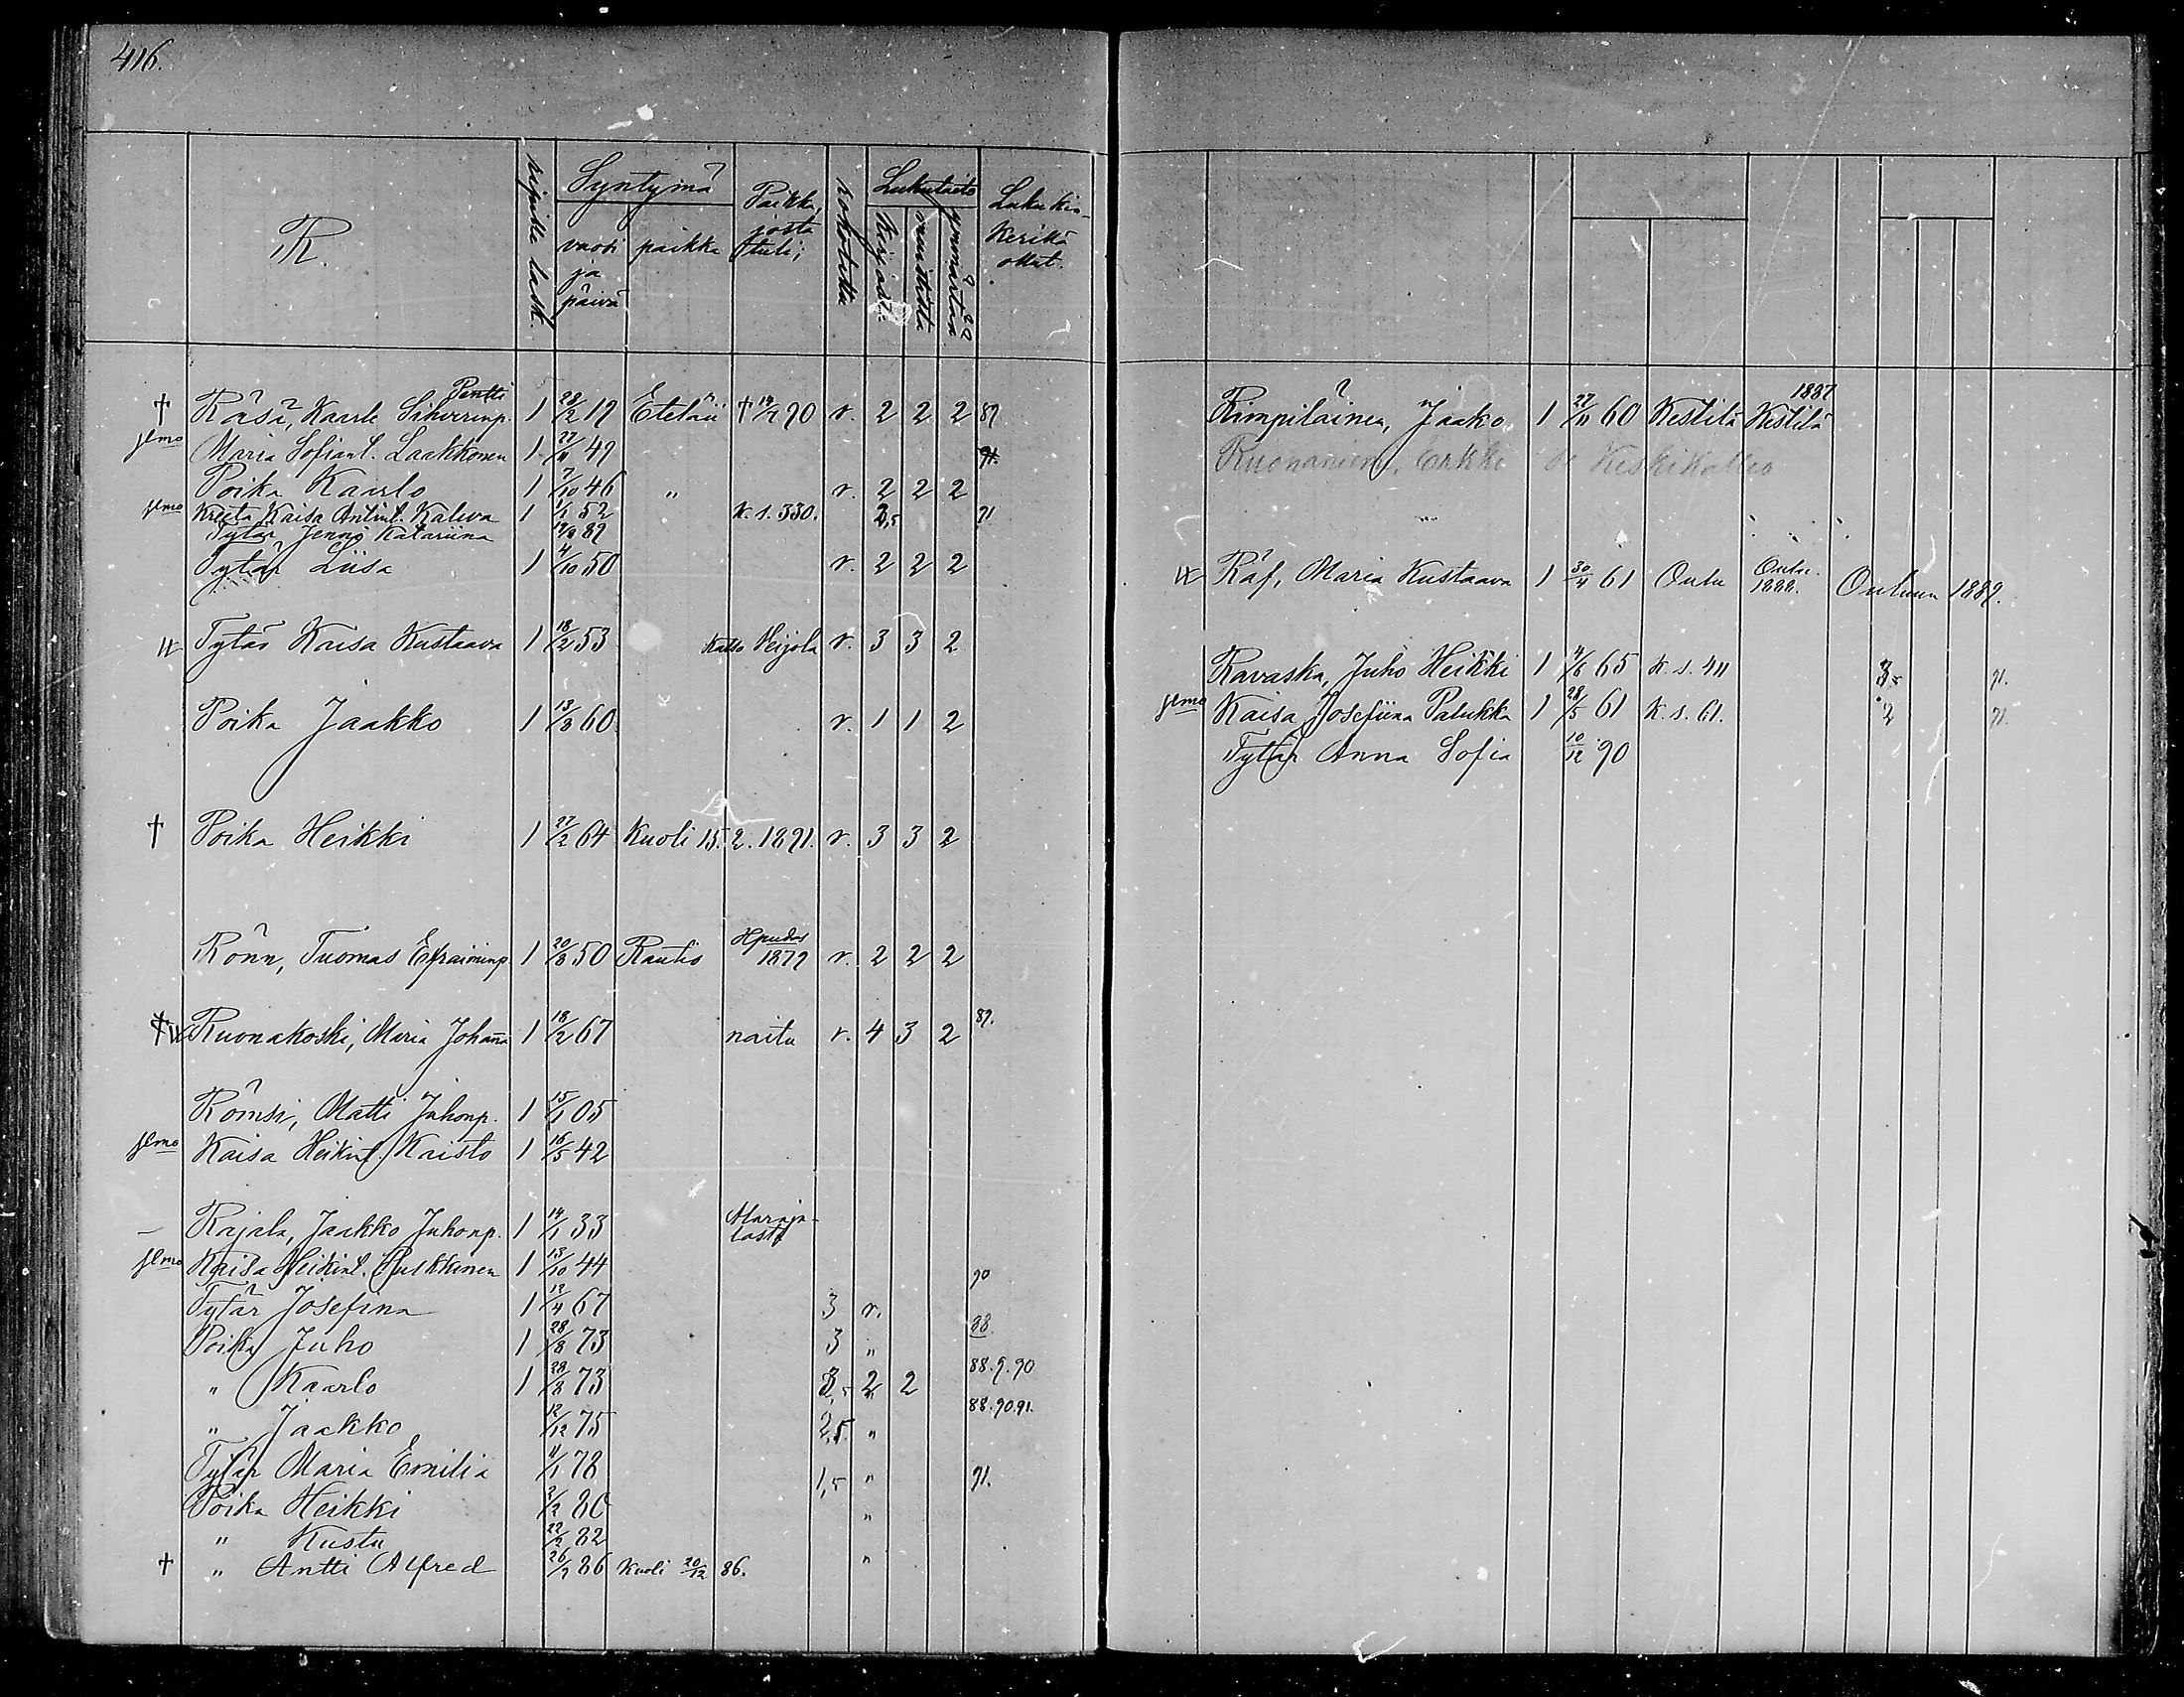 416.
R.
ripille lask.
Syntymä
vuosi ja päivä
paikka
Paikka, josta tuli;
rokotettu
Lukutaito
kirjasta
muistista
ymmärtää
Lukukinkerillä ollut.
Pentti
† Räsä, Kaarle 1 28/2 19 Etelän † 14/7 90 r. 2 2 2 89
Jlmo Maria Sofiant. Laakkonen 1 27/11 49 91.
Poika Kaarlo 1 7/10 46 " r. 2 2 2
Jlmo Kreeta Kaisa Antint. Kaleva 1 1/1 52 " K. s. 330. 2,5 91
Tytär Jenny Katariina 89
Tytär Liisa 1 4/10 50 r. 2 2 2
Tytär Kaisa Kustaava 1 18/2 53 Katso Heijola r. 3 3 2
Poika Jaakko 1 13/3 60 r. 1 1 2
† Poika Heikki 1 27/2 64 Kuoli 15. 2. 1891. r. 3 3 2
Rönn, Tuomas Efraiminp. 1 20/8 50 Rautio Hpudas 1879 r. 2 2 2
Ruonakoski, Maria Johanna 1 18/2 67 naitu r. 4 3 2 89.
Römsi, Matti Juhonp. 1 15/1 05
Jlmo Kaisa Heikint. Kaisto 1 16/5 42
– Rajala, Jaakko Juhonp. 1 14/1 33 Alarajalasta
Jlmo Kaisa Heikint. Pulkkinen 1 13/10 44
90
Tytär Josefina 1 12/4 67 3 r.
88.
Poika Juho 1 28/8 73 3 "
88. 9. 90
" Kaarlo 1 28/8 73 3,5 2 2
88. 90. 91.
" Jaakko 12/12 75 2,5 "
Tytär Maria Emilia 4/1 78 1,5 " 91.
Poika Heikki 2/2 80 "
" Kustu 22/2 82
† " Antti Alfred 26/7 86 Kuoli 20/12 86. "
1887
Rimpiläinen, Jaako 1 27/11 60 Kestilä Kestilä
Ruonanien, Erkki Keskikallio
Räf, Maria Kustaava 1 30/4 61 Oulu Oulu 1888. Ouluun 1889.
Ravaska, Juho Heikki 1 4/6 65 K. s. 411 3,5 91.
Jlmo Kaisa Josefiina Palukka 1 28/5 61 K. s. 61. 2 91.
Tytär Anna Sofia 10/12 90